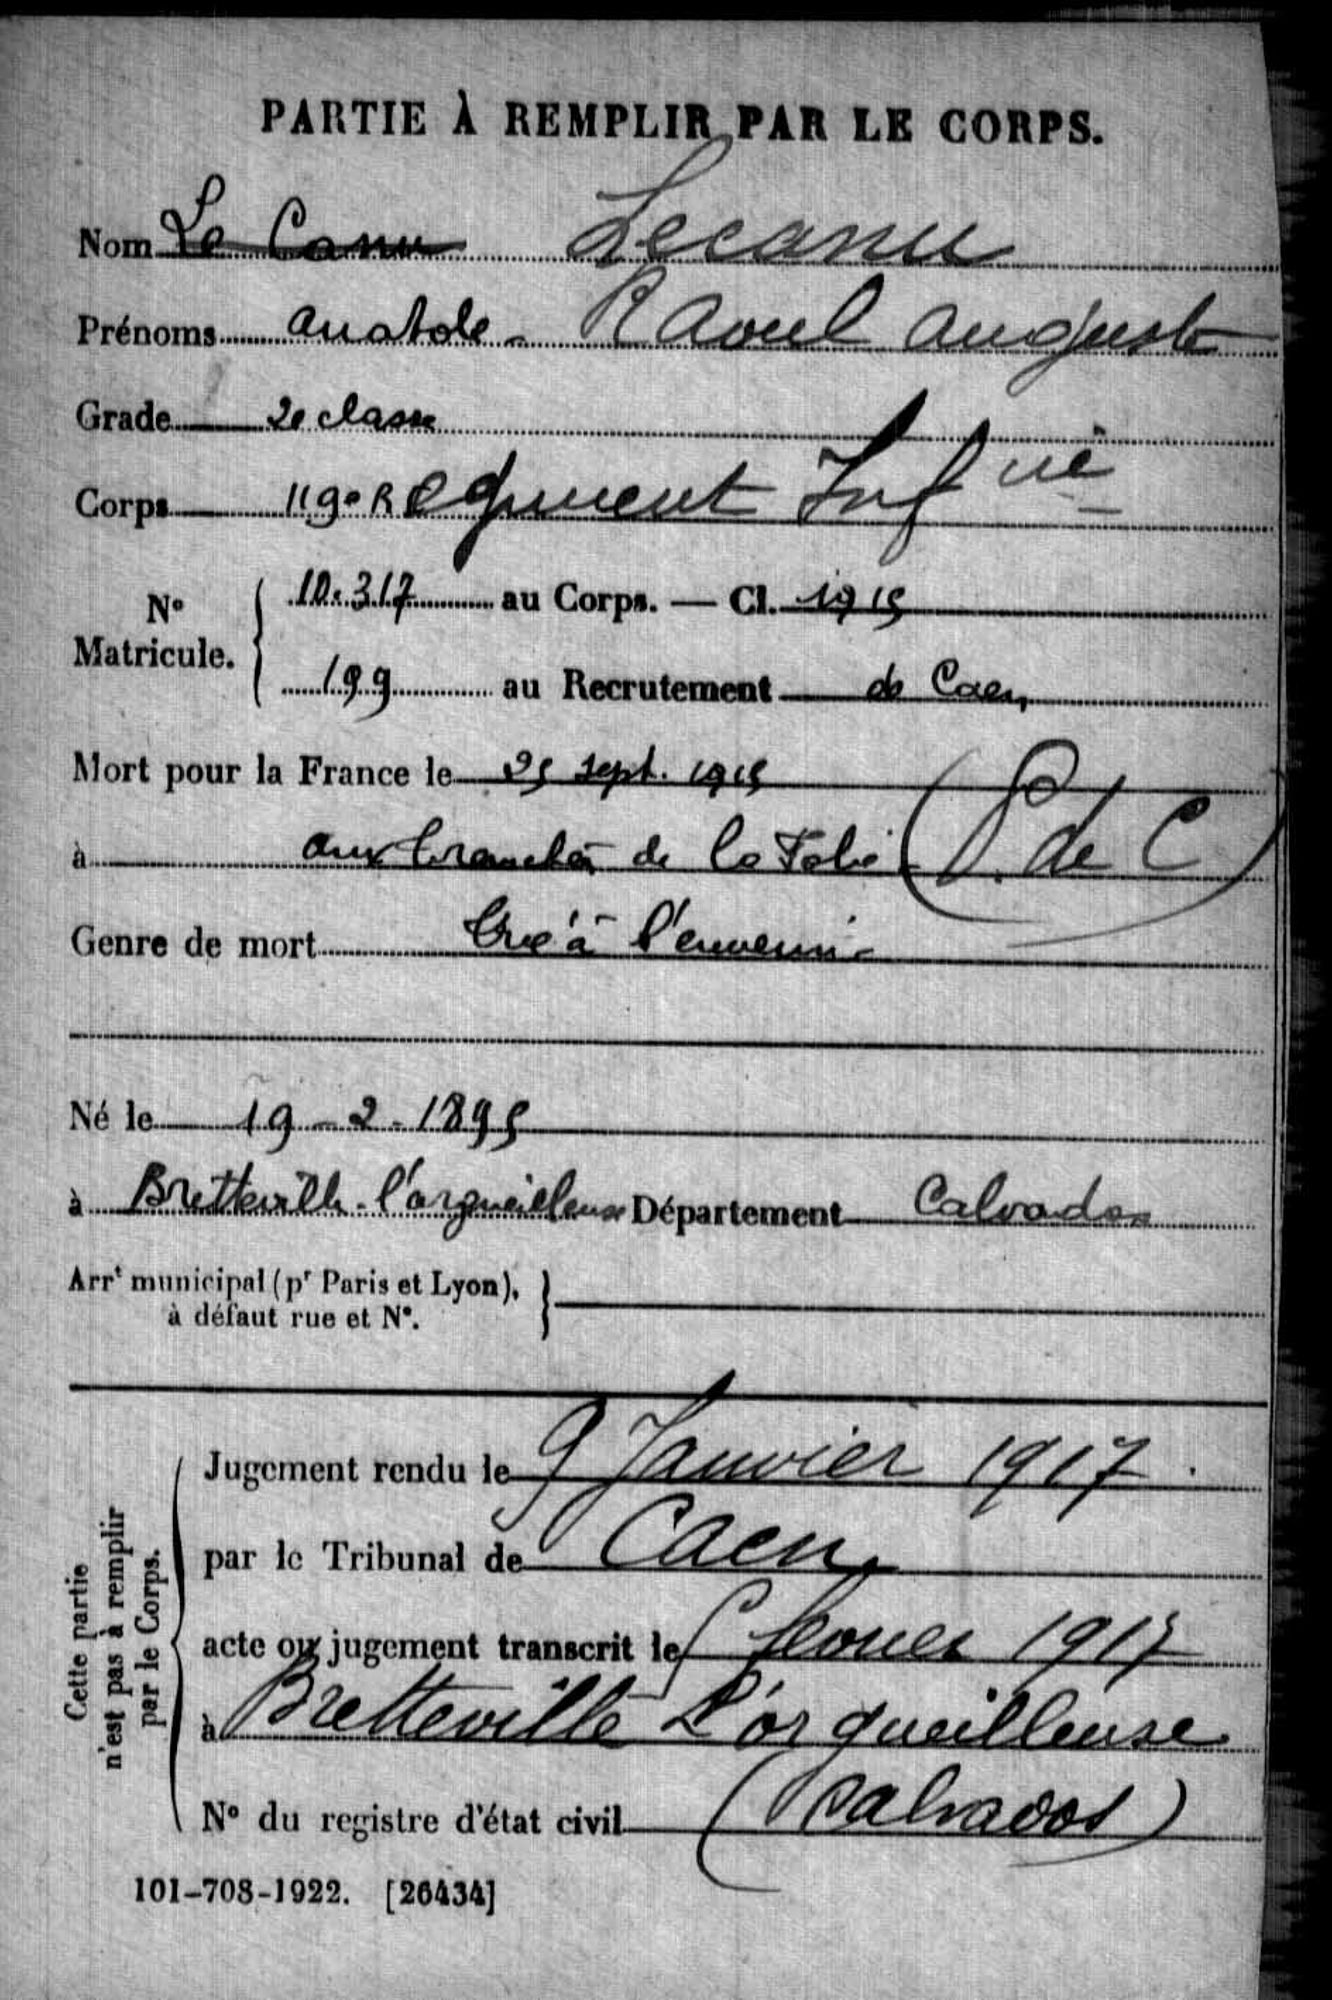 PARTIE À REMPLIR PAR LE CORPS.
Nom Le Canu Lecanu
Prénoms anatole - Raoul auguste
Grade 2e classe
Corps 119e Régiment Infrie
No Matricule. 10.317 au Corps. — Cl. 1915
199 au Recrutement de Caen
Mort pour la France le 25 sept. 1915
à aux tranchées de la Folie (P. de C)
Genre de mort Tué à l'ennemi -
Né le 19 - 2 - 1895
à Bretteville-l'orgueilleuse Département Calvados
Arrt municipal (pr Paris et Lyon),
à défaut rue et N°.
Cette partie
n'est pas à remplir
par le Corps.
Jugement rendu le 9 Janvier 1917.
par le Tribunal de Caen
acte ou jugement transcrit le février 1917
à Bretteville L'orgueilleuse
N° du registre d'état civil (Calvados)
101-708-1922. [26434]